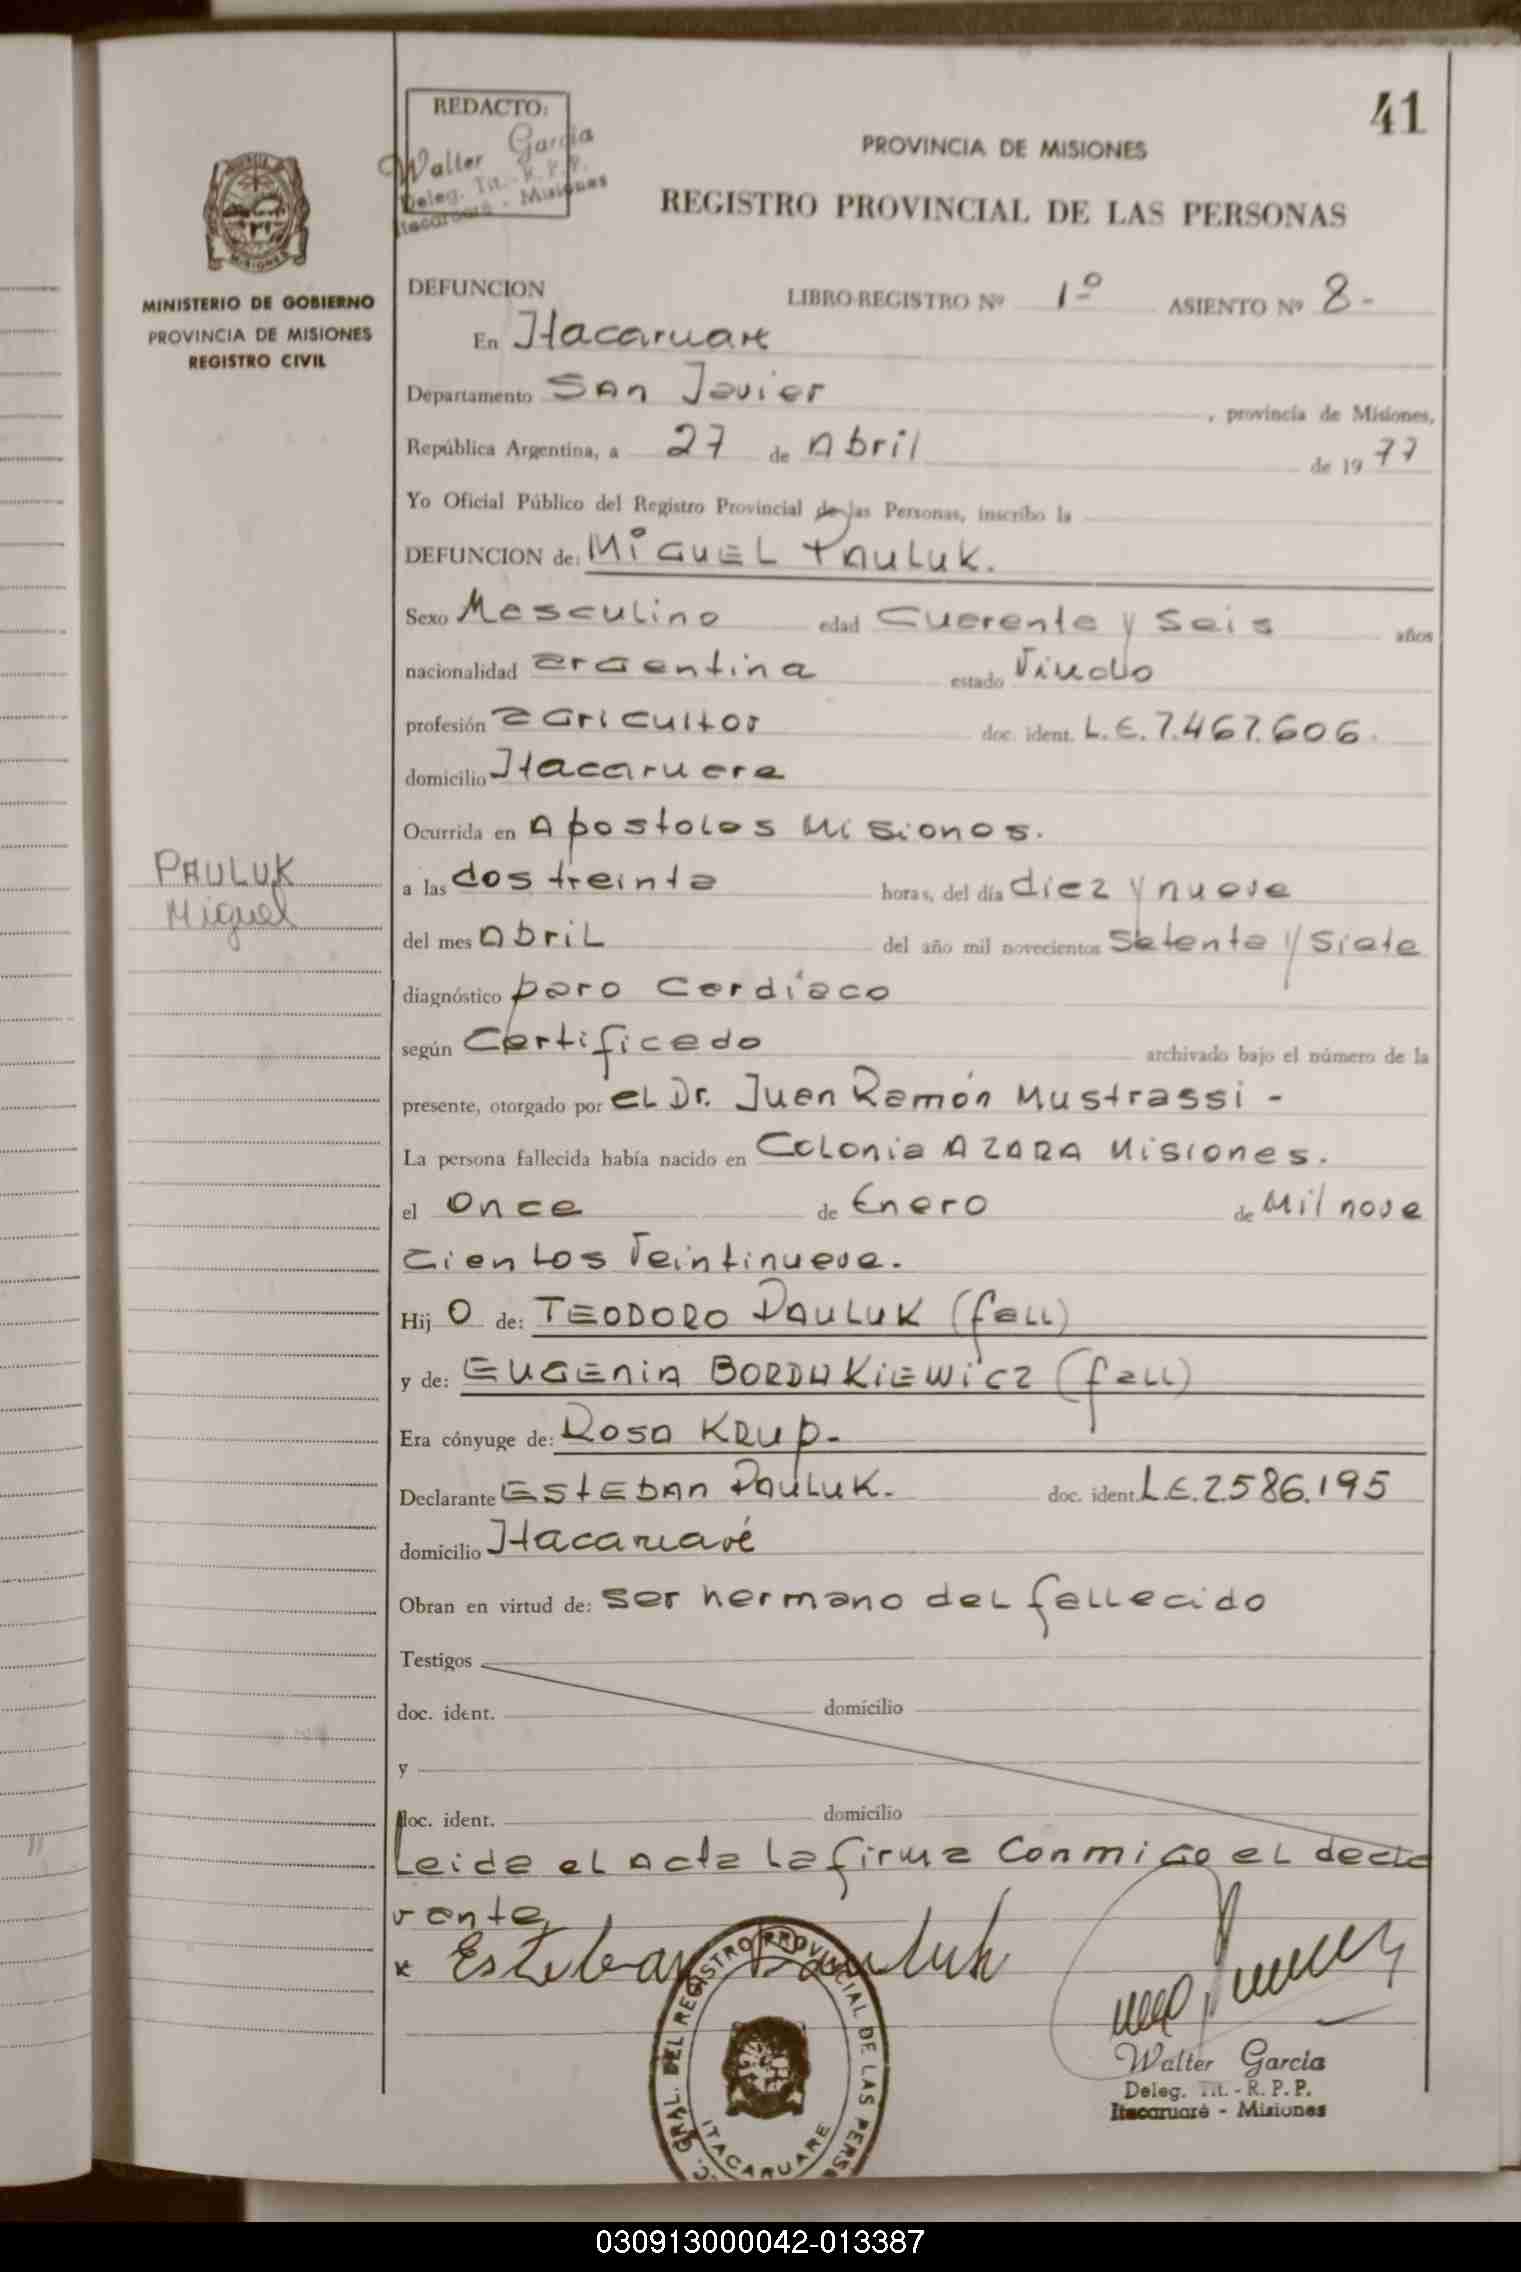 41
REDACTO:
Walter Garcia
Deleg. Tit. - R. P. P.
Itacaruaré - Misiones
PROVINCIA DE MISIONES
REGISTRO PROVINCIAL DE LAS PERSONAS
MISIONES
MINISTERIO DE GOBIERNO
PROVINCIA DE MISIONES
REGISTRO CIVIL
DEFUNCION LIBRO-REGISTRO Nº 1º ASIENTO Nº 8-
En Itacaruare
Departamento San Javier, provincia de Misiones,
República Argentina, a 27 de Abril de 1977
Yo Oficial Público del Registro Provincial de las Personas, inscribo la
DEFUNCION de: MiGUEL PAULUK.
Sexo Masculino edad Cuarenta y Seis años
nacionalidad argentina estado Viudo
profesión agricultor doc. ident. L.E. 7.467.606.
domicilio Itacaruare
Ocurrida en Apostoles Misiones.
a las dos treinta horas, del día diez y nueve
del mes Abril del año mil novecientos Setenta y Siete
diagnóstico paro Cardíaco
según Certificado archivado bajo el número de la
presente, otorgado por el Dr. Juan Ramón Mustrassi -
La persona fallecida había nacido en Colonia AZARA Misiones.
el once de Enero de Mil nove
cientos Veintinueve.
Hijo de: TEODORO PAULUK (fall)
y de: EUGENIA BORDUKIEWICZ (fall)
Era cónyuge de: Rosa KRUP.
Declarante ESTEBAN PAULUK. doc. ident. L.E. 2.586.195
domicilio Itacaruaré
Obran en virtud de: ser hermano del fallecido
Testigos
doc. ident. domicilio
y
doc. ident. domicilio
Leida el acta la firma Conmigo el decla
rante,
x Esteban Pauluk
PAULUK
Miguel
GRAL. DEL REGISTRO PROVINCIAL DE LAS PERS
ITACARUARE
Walter Garcia
Deleg. Tit. - R. P. P.
Itacaruaré - Misiones
030913000042-013387